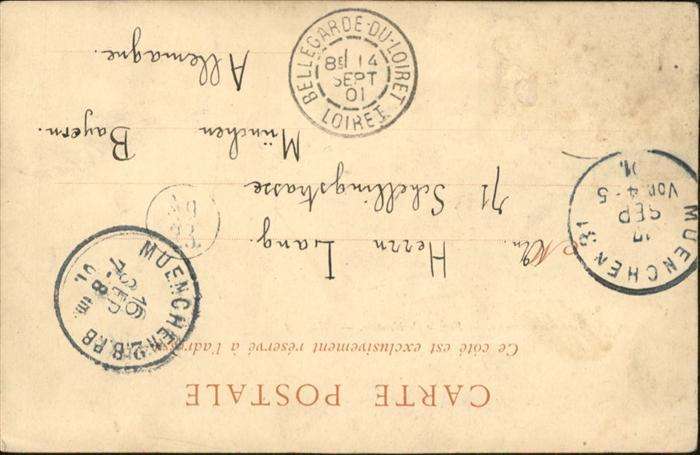 CARTE POSTALE
Ce côté est exclusivement réservé à l'adresse
Herrn Lang.
71 Schellingstrasse
München Bayern.
Allemagne.
MUENCHEN 2 B.P.B
16 SEP.
7-8 Nm.
01.
MUENCHEN 31
17 SEP
VOR 4-5
01.
BELLEGARDE-DU-LOIRET
8E 14
SEPT
01
LOIRET